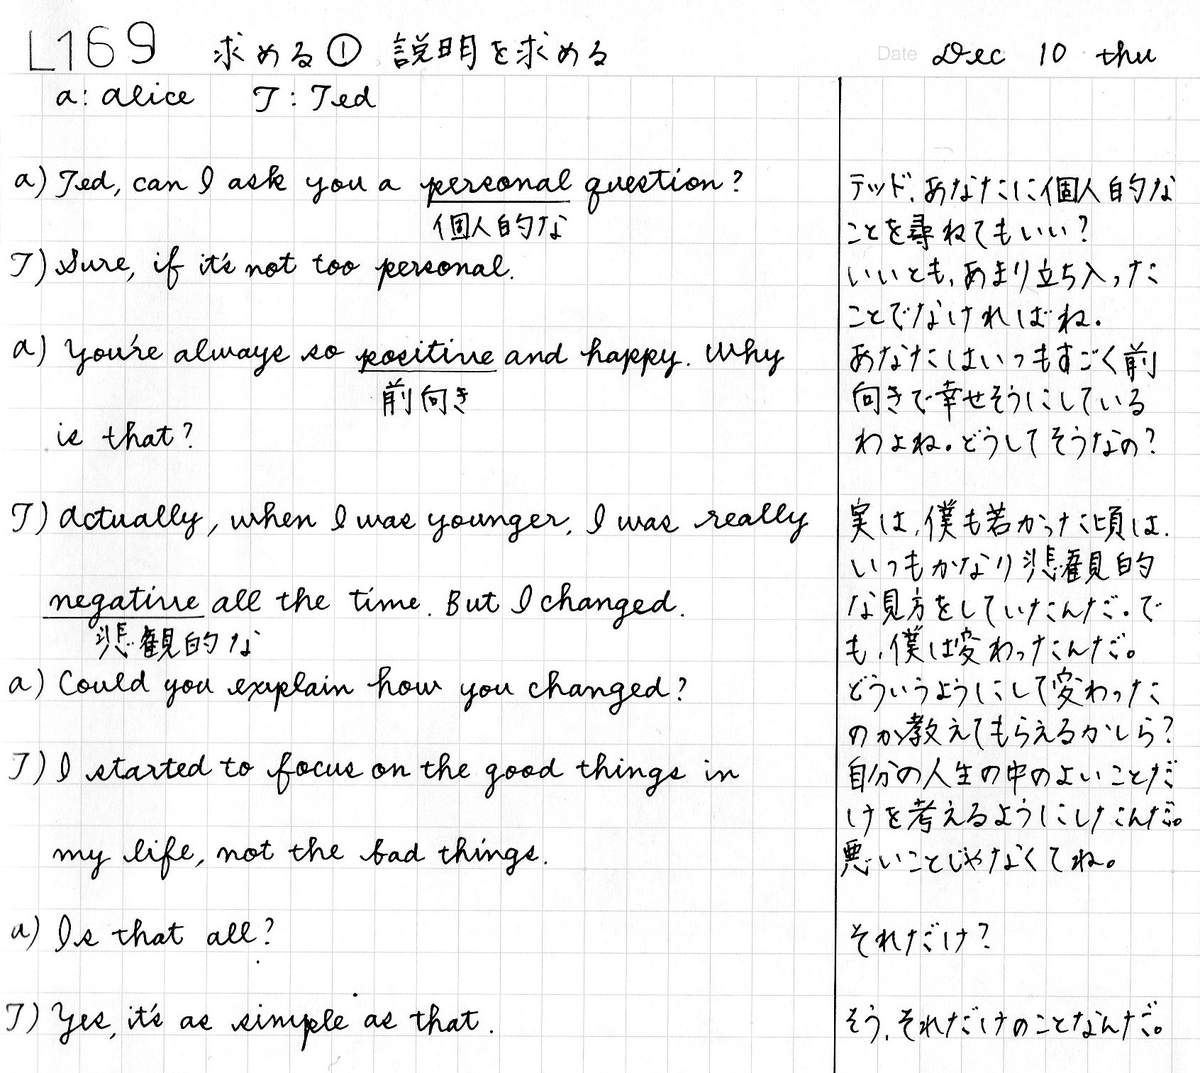 L169 求める① 説明を求める Date Dec 10 thu
a: alice T: Ted
a) Ted, can I ask you a personal question?
個人的な
T) Sure, if it's not too personal.
a) You're always so positive and happy. Why
前向き
is that?
T) Actually, when I was younger, I was really
negative all the time. But I changed.
悲観的な
a) Could you explain how you changed?
T) I started to focus on the good things in
my life, not the bad things.
a) Is that all?
T) Yes, it's as simple as that.
テッド、あなたに個人的な
ことを尋ねてもいい?
いいとも、あまり立ち入った
ことでなければね。
あなたはいつもすごく前
向きで幸せそうにしている
わよね。どうしてそうなの?
実は、僕も若かった頃は、
いつもかなり悲観的
な見方をしていたんだ。で
も、僕は変わったんだ。
どういうようにして変わった
のか教えてもらえるかしら?
自分の人生の中のよいことだ
けを考えるようにしたんだ。
悪いことじゃなくてね。
それだけ?
そう、それだけのことなんだ。